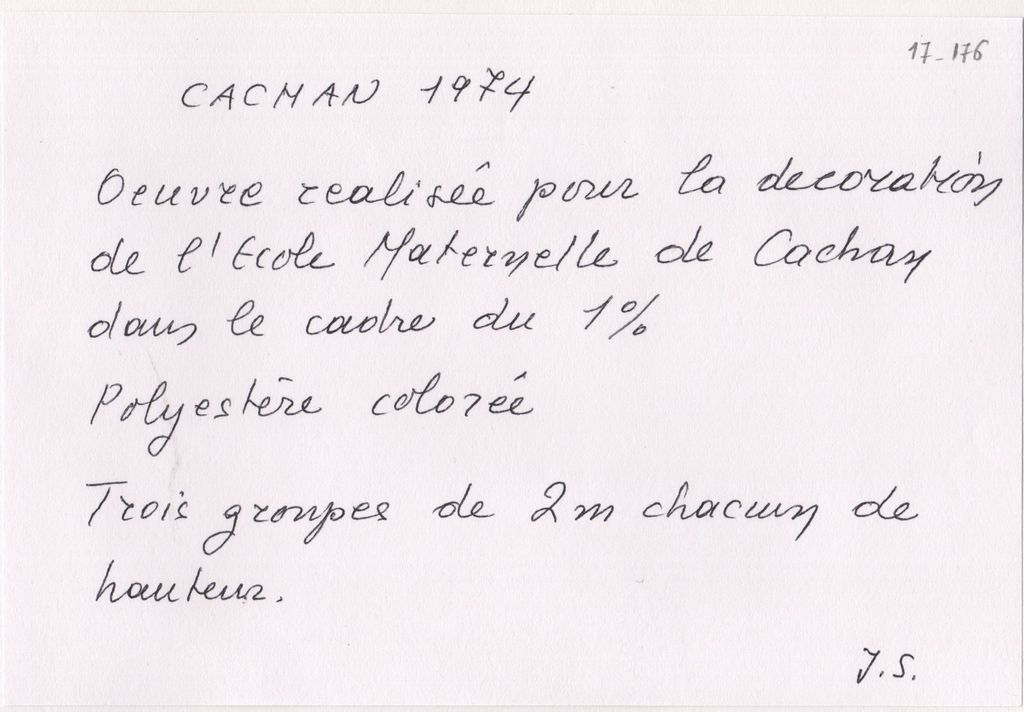 17-176
CACHAN 1974
Oeuvre realisée pour la decoration
de l'Ecole Maternelle de Cachan
dans le cadre du 1%
Polyestère colorée
Trois groupes de 2m chacun de
hauteur.
J.S.